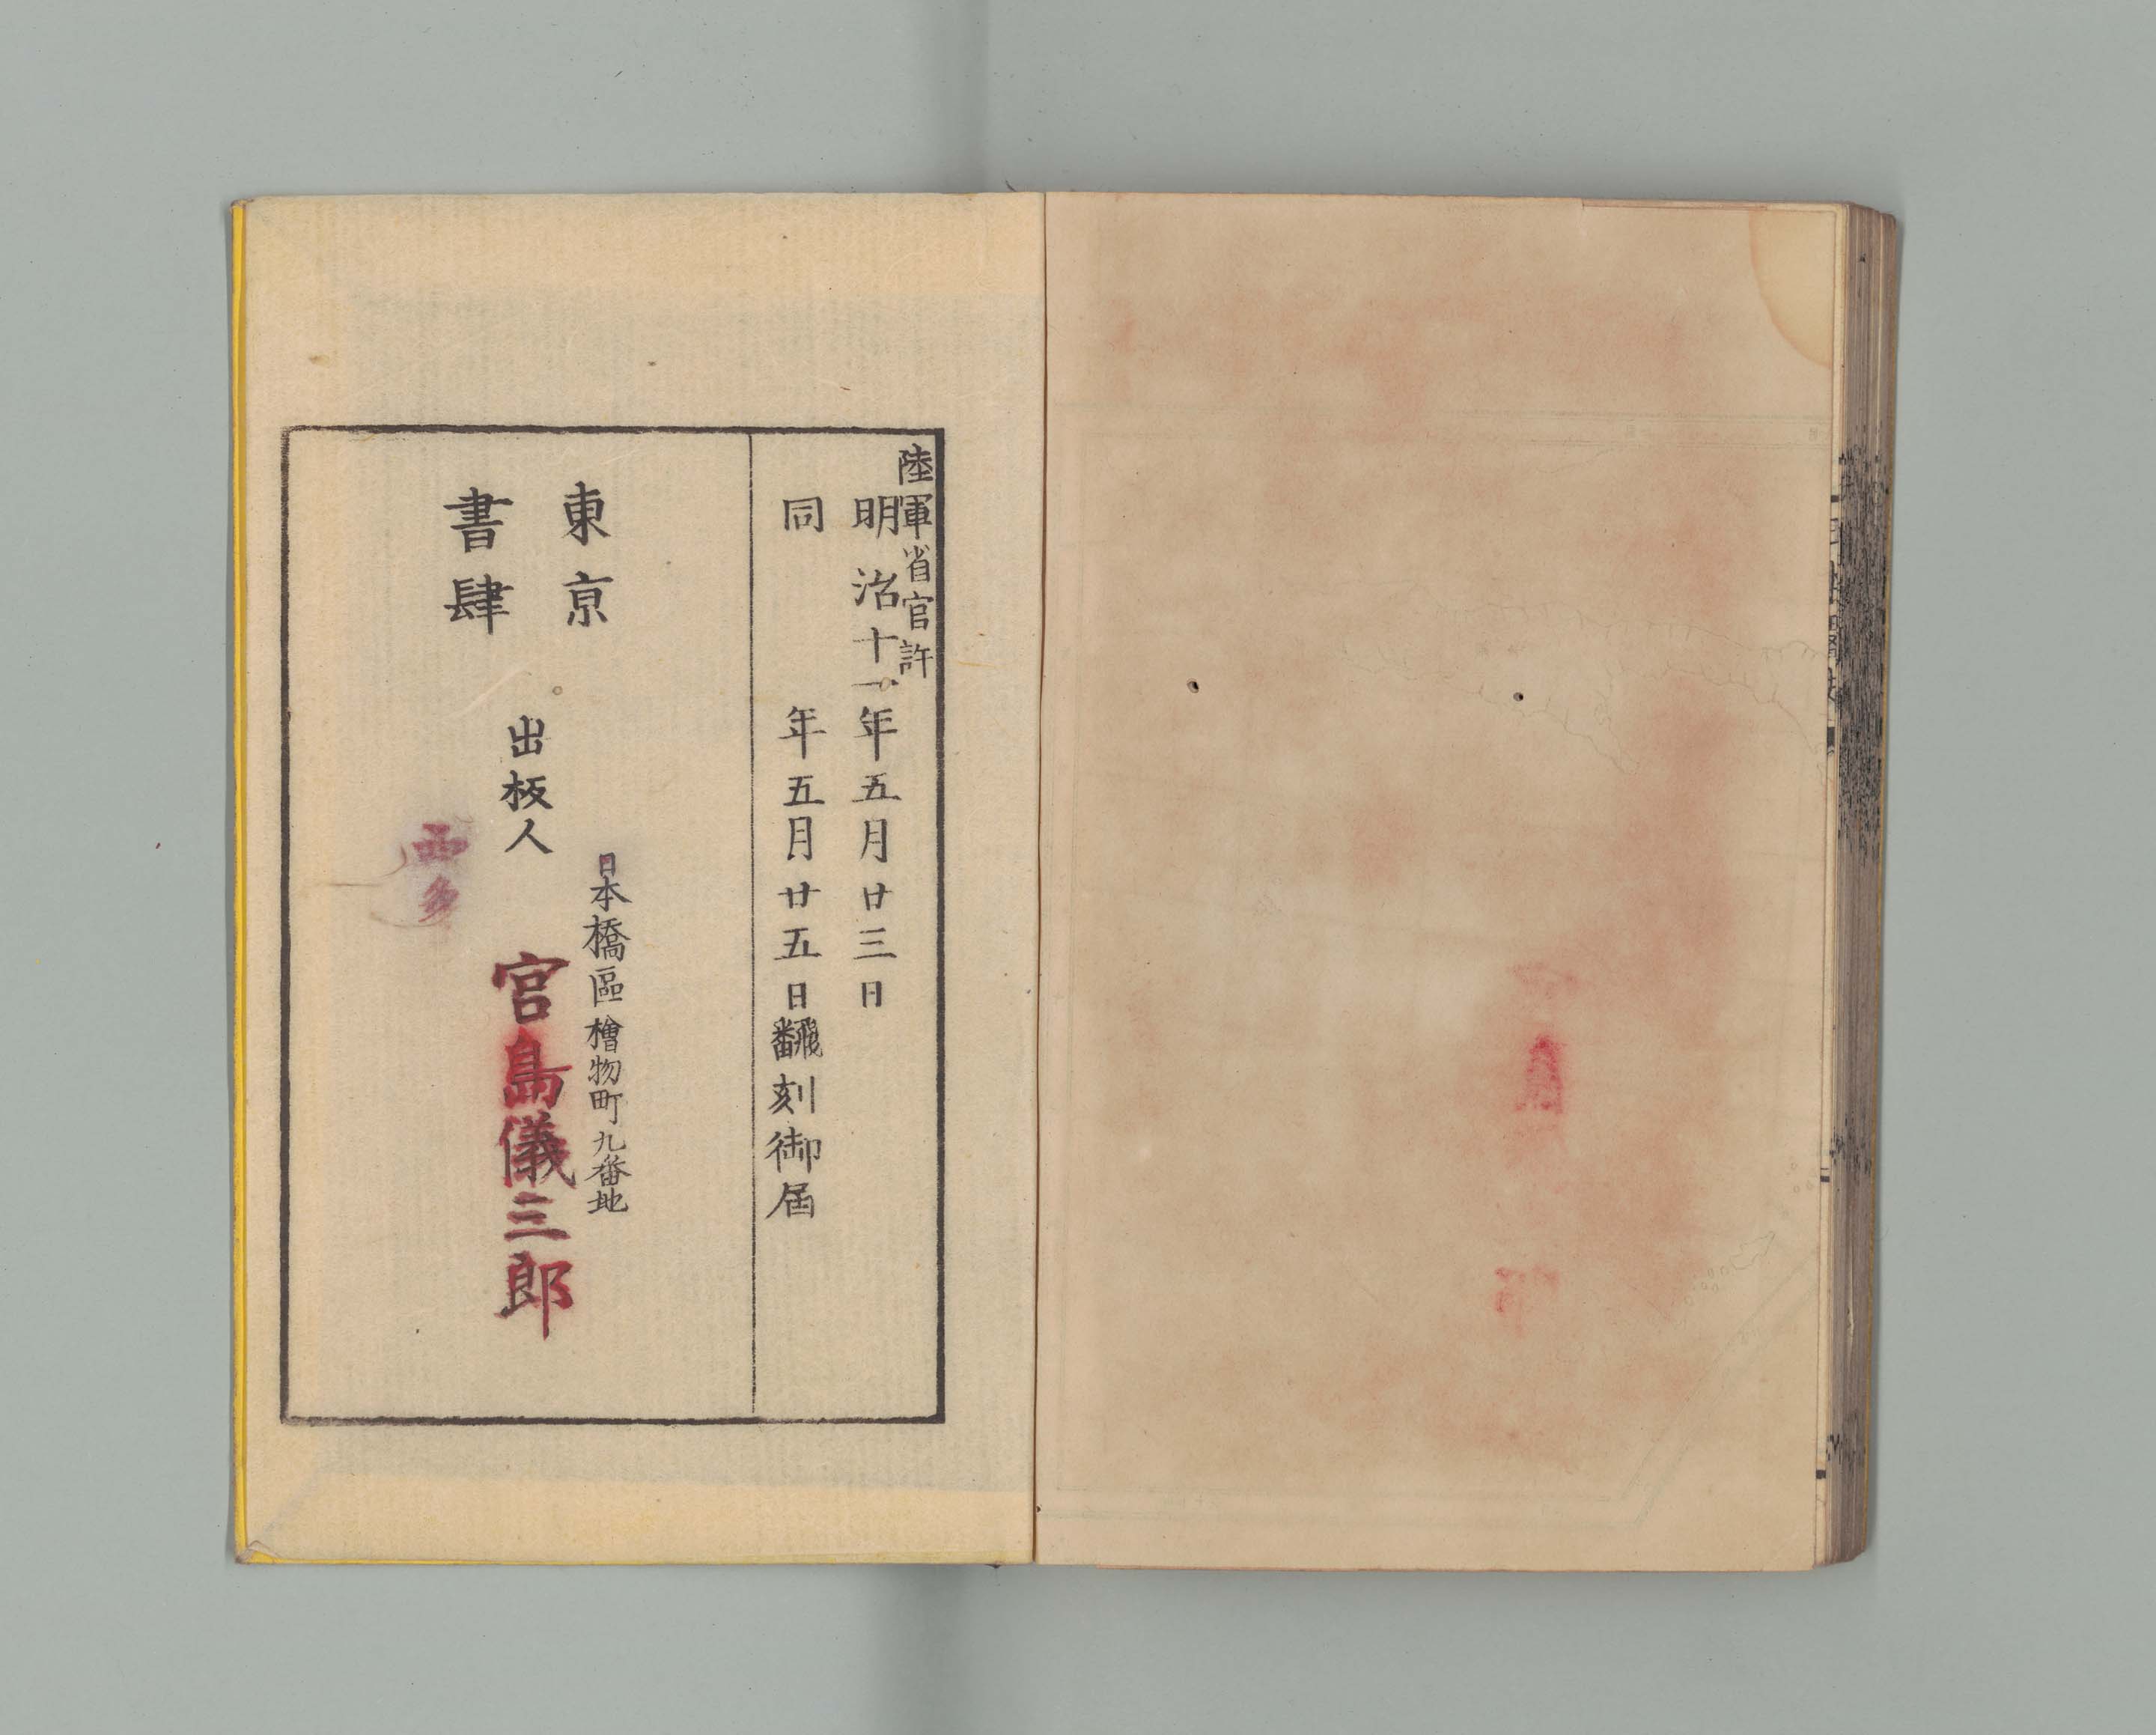 陸軍省官許
明治十一年五月廿三日
同年五月廿五日飜刻御届
東京
書肆
日本橋區檜物町九番地
出板人
宮島儀三郎